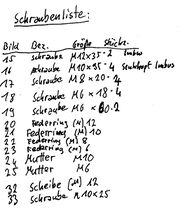 Schraubenliste:
Bild Bez. Größe Stückz.
15 Schraube M12x35 - 2 Imbus
16 Schraube M10x35 - 4 Senkkopf Imbus
17 Schraube M8 x 20 - 2
18 Schraube M6 x 18 - 4
19 Schraube M6 x 60 - 2
20 Federring (M) 12
21 Federring (M) 10
22 Federring (M) 8
23 Federring (M) 6
24 Mutter M10
25 Mutter M6
32 Scheibe (M) 12
33 Schraube M10x25